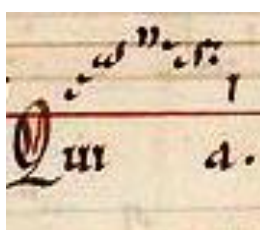 Qui a.